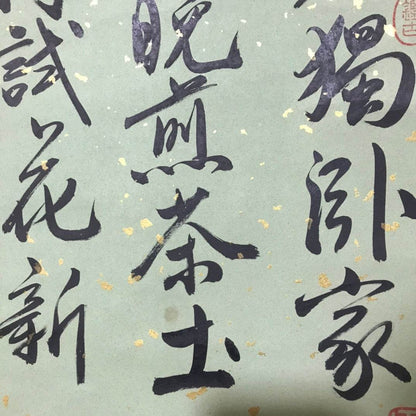 獨卧家
晚煎茶土
試花新